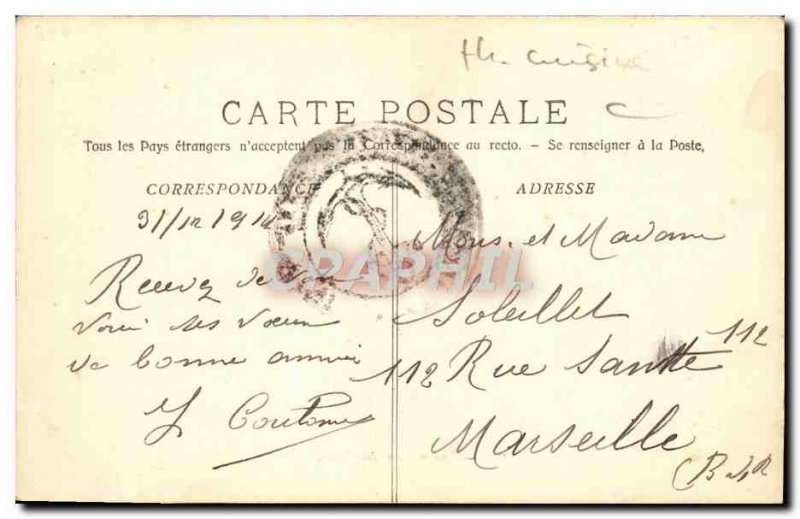 CARTE POSTALE
Tous les Pays étrangers n'acceptent pas la Correspondance au recto. - Se renseigner à la Poste,
CORRESPONDANCE
31/12 1914
Recevez de
ses voeux
de bonne année
ADRESSE
Mons. et Madame
Soleillet
112 Rue Sainte 112
Marseille
(B d R
CPAPHIL